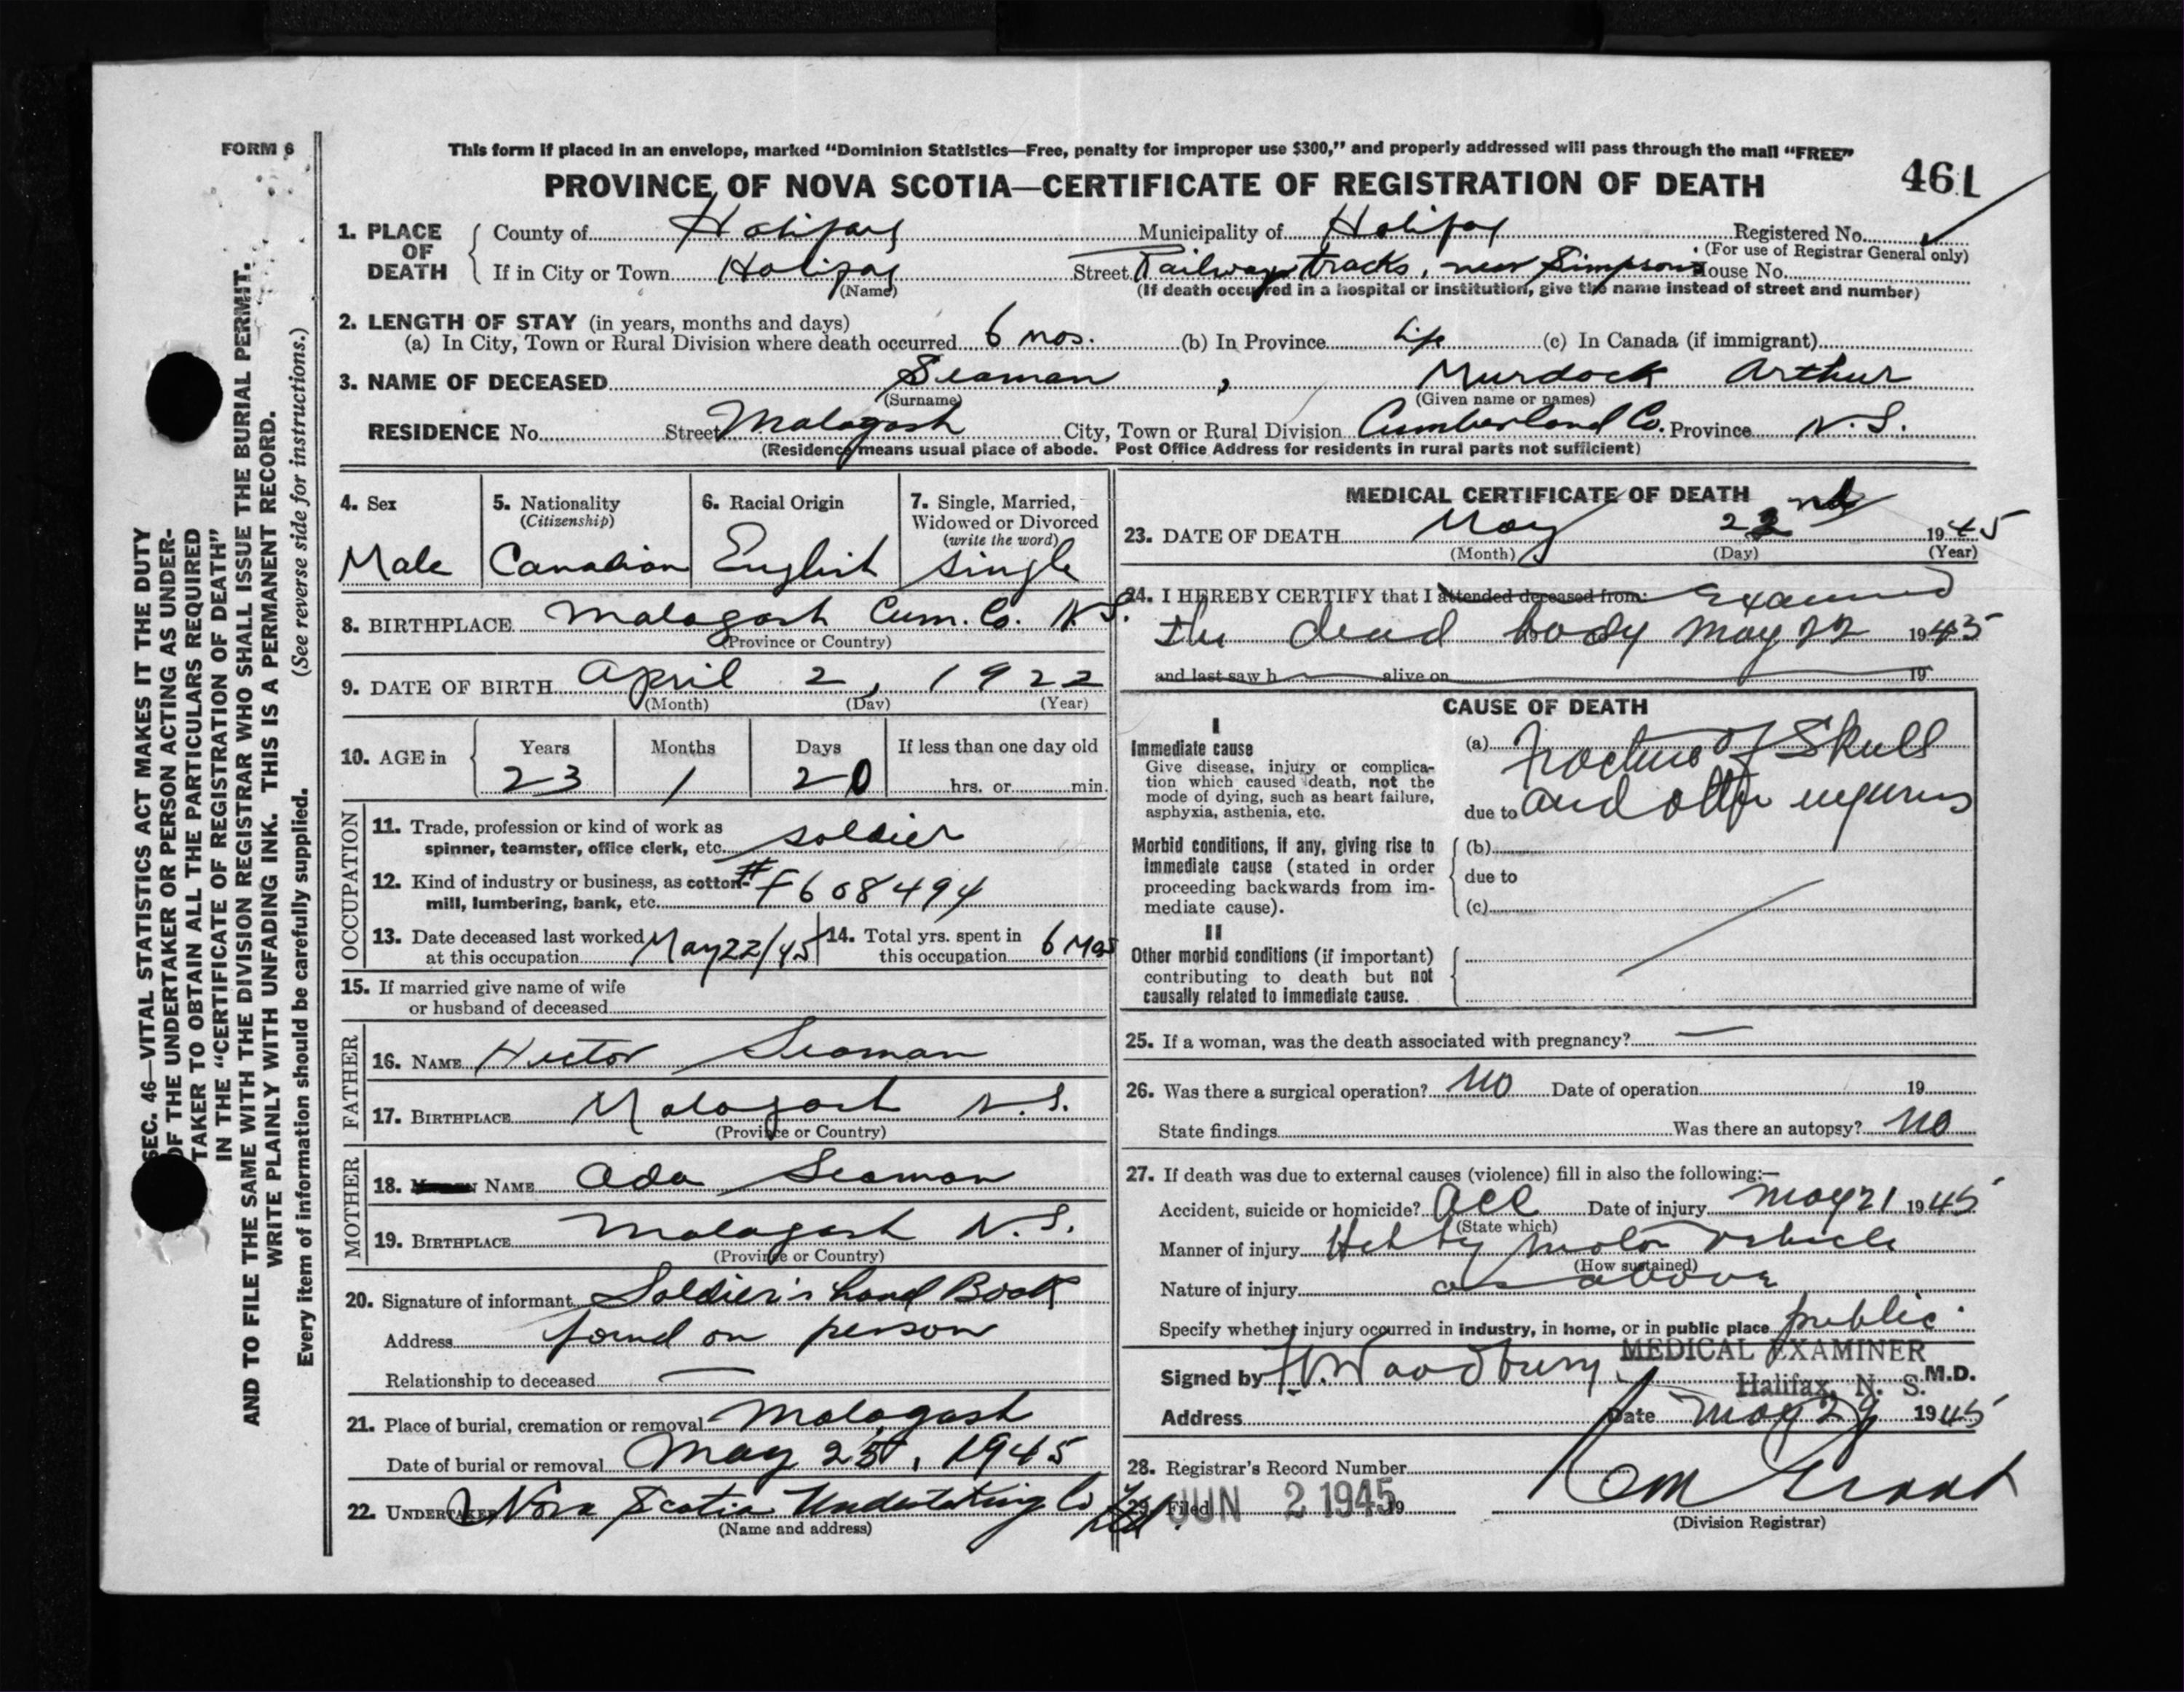 FORM 6
This form if placed in an envelope, marked “Dominion Statistics—Free, penalty for improper use $300,” and properly addressed will pass through the mail “FREE”
PROVINCE OF NOVA SCOTIA—CERTIFICATE OF REGISTRATION OF DEATH
461
1. PLACE OF DEATH
County of Halifax Municipality of Halifax Registered No.
(For use of Registrar General only)
If in City or Town Halifax Street Railway tracks, near Simpsons House No.
(Name) (If death occurred in a hospital or institution, give the name instead of street and number)
2. LENGTH OF STAY (in years, months and days)
(a) In City, Town or Rural Division where death occurred 6 mos. (b) In Province Life (c) In Canada (if immigrant)
3. NAME OF DECEASED Seaman , Murdock Arthur
(Surname) (Given name or names)
RESIDENCE No. Street Malagash City, Town or Rural Division Cumberland Co. Province N.S.
(Residence means usual place of abode. Post Office Address for residents in rural parts not sufficient)
SEC. 46—VITAL STATISTICS ACT MAKES IT THE DUTY
OF THE UNDERTAKER OR PERSON ACTING AS UNDER-
TAKER TO OBTAIN ALL THE PARTICULARS REQUIRED
IN THE “CERTIFICATE OF REGISTRATION OF DEATH”
AND TO FILE THE SAME WITH THE DIVISION REGISTRAR WHO SHALL ISSUE THE BURIAL PERMIT.
WRITE PLAINLY WITH UNFADING INK. THIS IS A PERMANENT RECORD.
Every item of information should be carefully supplied. (See reverse side for instructions.)
4. Sex
Male
5. Nationality
(Citizenship)
Canadian
6. Racial Origin
English
7. Single, Married,
Widowed or Divorced
(write the word)
single
8. BIRTHPLACE Malagash Cum. Co. N.S.
(Province or Country)
9. DATE OF BIRTH April 2, 1922
(Month) (Day) (Year)
10. AGE in
Years Months Days If less than one day old
23 1 20 hrs. or min.
OCCUPATION
11. Trade, profession or kind of work as
spinner, teamster, office clerk, etc. soldier
12. Kind of industry or business, as cotton-
mill, lumbering, bank, etc. # F608494
13. Date deceased last worked
at this occupation May 22/45
14. Total yrs. spent in
this occupation 6 Mos
15. If married give name of wife
or husband of deceased
FATHER
16. NAME Hector Seaman
17. BIRTHPLACE Malagash N.S.
(Province or Country)
MOTHER
18. NAME Ada Seaman
19. BIRTHPLACE Malagash N.S.
(Province or Country)
20. Signature of informant Soldier's hand Book
Address found on person
Relationship to deceased —
21. Place of burial, cremation or removal Malagash
Date of burial or removal May 25, 1945
22. UNDERTAKER Nova Scotia Undertaking Co Ltd.
(Name and address)
MEDICAL CERTIFICATE OF DEATH
23. DATE OF DEATH May 22nd 1945
(Month) (Day) (Year)
24. I HEREBY CERTIFY that I attended deceased from: Examined
the dead body May 22 1945
and last saw h alive on 19
CAUSE OF DEATH
I
Immediate cause
Give disease, injury or complica-
tion which caused death, not the
mode of dying, such as heart failure,
asphyxia, asthenia, etc.
(a) Fracture of Skull
due to and other injuries
Morbid conditions, if any, giving rise to
immediate cause (stated in order
proceeding backwards from im-
mediate cause).
(b)
due to
(c)
II
Other morbid conditions (if important)
contributing to death but not
causally related to immediate cause.
25. If a woman, was the death associated with pregnancy? —
26. Was there a surgical operation? no Date of operation 19
State findings Was there an autopsy? no
27. If death was due to external causes (violence) fill in also the following:—
Accident, suicide or homicide? acc Date of injury May 21 1945
(State which)
Manner of injury Hit by motor vehicle
(How sustained)
Nature of injury as above
Specify whether injury occurred in industry, in home, or in public place public
MEDICAL EXAMINER
Signed by Woodbury M.D.
Halifax, N. S.
Address Date May 29 1945
28. Registrar's Record Number
29. Filed JUN 2 1945 19
Grant
(Division Registrar)